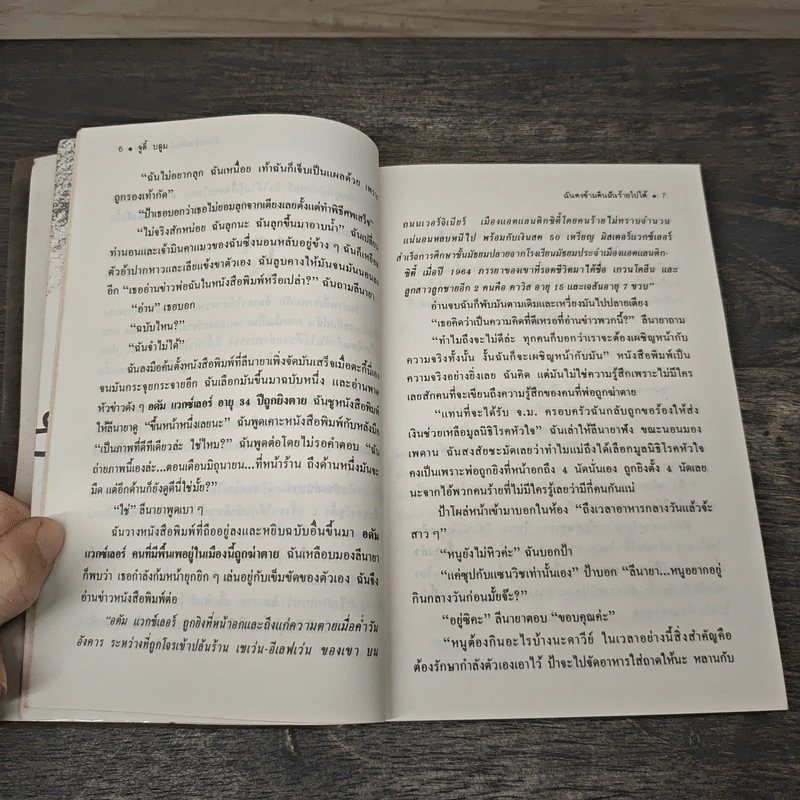 6 • จูดี้ บลูม
“ฉันไม่อยากลุก ฉันเหนื่อย เท้าฉันก็เจ็บเป็นแผลด้วย เพราะ
ถูกรองเท้ากัด”
“ป้าเธอบอกว่าเธอไม่ยอมลุกจากเตียงเลยตั้งแต่ทำพิธีศพเสร็จ”
“ไม่จริงสักหน่อย ฉันลุกนะ ฉันลุกขึ้นมาอาบน้ำ” ฉันเปลี่ยน
ท่านอนและเจ้ามินคาแมวของฉันซึ่งนอนหลับอยู่ข้าง ๆ ฉันก็เหยียด
ตัวอ้าปากหาวและเลียแข้งขาตัวเอง ฉันลูบคางให้มันจนมันนอนลง
อีก “เธออ่านข่าวพ่อฉันในหนังสือพิมพ์หรือเปล่า?” ฉันถามลีนายา
“อ่าน” เธอบอก
“ฉบับไหน?”
“ฉันจำไม่ได้”
ฉันลงมือค้นตั้งหนังสือพิมพ์ที่ลีนายาเพิ่งจัดมันเสร็จเมื่อตะกี้นี้เอง
จนมันกระจุยกระจายอีก ฉันเลือกมันขึ้นมาฉบับหนึ่ง และอ่านพาด
หัวข่าวดัง ๆ อดัม แวกซ์เลอร์ อายุ 34 ปีถูกยิงตาย ฉันชูหนังสือพิมพ์
ให้ลีนายาดู “ขึ้นหน้าหนึ่งเลยนะ” ฉันพูดเคาะหนังสือพิมพ์กับหลังมือ
“เป็นภาพที่ดีทีเดียวล่ะ ใช่ไหม?” ฉันพูดต่อโดยไม่รอคำตอบ “ฉัน
ถ่ายภาพนี้เองล่ะ...ตอนเดือนมิถุนายน...ที่หน้าร้าน ถึงด้านหนึ่งมันจะ
มืด แต่อีกด้านก็ยังดูดีนี่ใช่มั้ย?”
“ใช่” ลีนายาพูดเบา ๆ
ฉันวางหนังสือพิมพ์ที่ถืออยู่ลงและหยิบฉบับอื่นขึ้นมา อดัม
แวกซ์เลอร์ คนที่มีพื้นเพอยู่ในเมืองนี้ถูกฆ่าตาย ฉันเหลือบมองลีนายา
ก็พบว่า เธอกำลังก้มหน้ายุกยิก ๆ เล่นอยู่กับเข็มขัดของตัวเอง ฉันจึง
อ่านข่าวหนังสือพิมพ์ต่อ
“อดัม แวกซ์เลอร์ ถูกยิงที่หน้าอกและถึงแก่ความตายเมื่อค่ำวัน
อังคาร ระหว่างที่ถูกโจรเข้าปล้นร้าน เซเว่น-อีเลฟเว่น ของเขา บน
ฉันคงข้ามคืนฝันร้ายไปได้ • 7
ถนนเวอร์จิเนียร์ เมืองแอตแลนติกซิตี้โดยคนร้ายไม่ทราบจำนวน
แน่นอนหลบหนีไป พร้อมกับเงินสด 50 เหรียญ มิสเตอร์แวกซ์เลอร์
สำเร็จการศึกษาชั้นมัธยมปลายจากโรงเรียนมัธยมประจำเมืองแอตแลนติก-
ซิตี้ เมื่อปี 1964 ภรรยาของเขาที่รอดชีวิตมาได้ชื่อ เกวนโดลีน และ
ลูกสาวลูกชายอีก 2 คนคือ ดาวิส อายุ 15 และเจสันอายุ 7 ขวบ”
อ่านจบฉันก็พับมันตามเดิมและเหวี่ยงมันไปปลายเตียง
“เธอคิดว่าเป็นความคิดที่ดีเหรอที่อ่านข่าวพวกนี้?” ลีนายาถาม
“ทำไมถึงจะไม่ดีล่ะ ทุกคนก็บอกว่าเราจะต้องเผชิญหน้ากับ
ความจริงทั้งนั้น งั้นฉันก็จะเผชิญหน้ากับมัน” หนังสือพิมพ์เป็น
ความจริงอย่างยิ่งเลย ฉันคิด แต่มันไม่ใช่ความรู้สึกเพราะไม่มีใคร
เลยสักคนที่จะเขียนถึงความรู้สึกของคนที่พ่อถูกฆ่าตาย
“แทนที่จะได้รับ จ.ม. ครอบครัวฉันกลับถูกขอร้องให้ส่ง
เงินช่วยเหลือมูลนิธิโรคหัวใจ” ฉันเล่าให้ลีนายาฟัง ขณะนอนมอง
เพดาน ฉันสงสัยชะมัดเลยว่าทำไมแม่ถึงได้เลือกมูลนิธิโรคหัวใจ
คงเป็นเพราะพ่อถูกยิงที่หน้าอกถึง 4 นัดนั่นเอง ถูกยิงตั้ง 4 นัดเลย
นะจากไอ้พวกคนร้ายที่ไม่มีใครรู้เลยว่ามีกี่คนกันแน่
ป้าโผล่หน้าเข้ามาบอกในห้อง “ถึงเวลาอาหารกลางวันแล้วจ้ะ
สาว ๆ”
“หนูยังไม่หิวค่ะ” ฉันบอกป้า
“แค่ซุปกับแซนวิชเท่านั้นเอง” ป้าบอก “ลีนายา...หนูอยากอยู่
กินกลางวันก่อนมั้ยจ๊ะ?”
“อยู่ซิคะ” ลีนายาตอบ “ขอบคุณค่ะ”
“หนูต้องกินอะไรบ้างนะดาวีย์ ในเวลาอย่างนี้สิ่งสำคัญคือ
ต้องรักษากำลังตัวเองเอาไว้ ป้าจะไปจัดอาหารใส่ถาดให้นะ หลานกับ